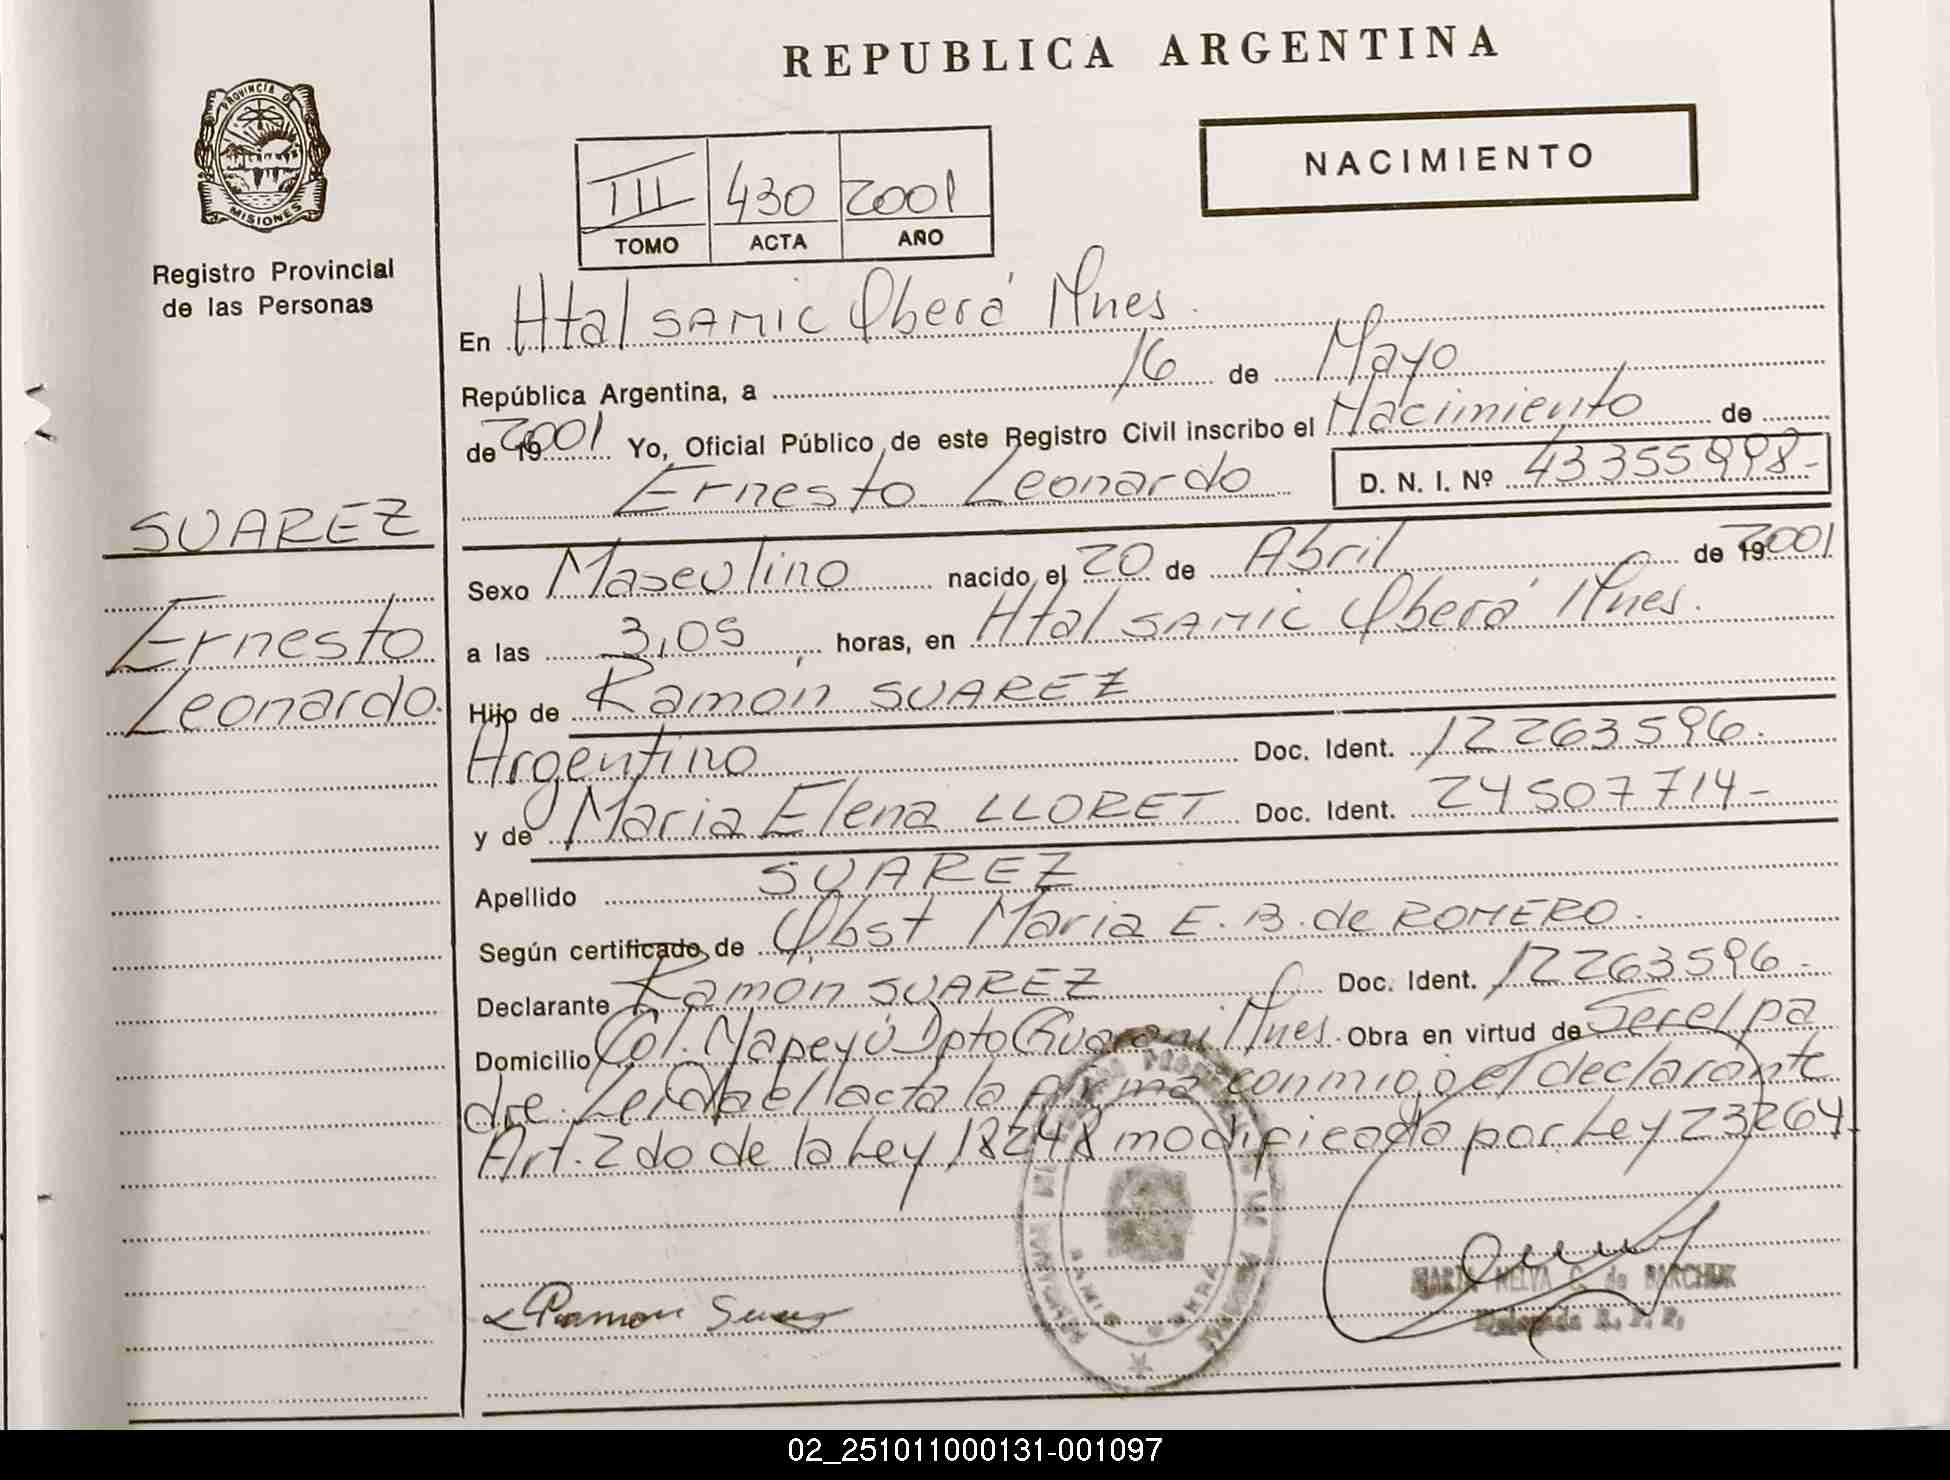 REPUBLICA ARGENTINA
PROVINCIA D
MISIONES
Registro Provincial
de las Personas
III 430 2001
TOMO ACTA AÑO
NACIMIENTO
En Htal SAMIC Oberá Mnes.
República Argentina, a 16 de Mayo
de 19 2001 Yo, Oficial Público de este Registro Civil inscribo el Nacimiento de
Ernesto Leonardo D. N. I. Nº 43355998-
SUAREZ
Ernesto
Leonardo.
Sexo Masculino nacido el 20 de Abril de 19 2001
a las 3,05 horas, en Htal SAMIC Oberá Mnes.
Hijo de Ramon SUAREZ
Argentino Doc. Ident. 12263596.
y de Maria Elena LLORET Doc. Ident. 24507714-
Apellido SUAREZ
Según certificado de Obst Maria E. B. de ROMERO.
Declarante Ramon SUAREZ Doc. Ident. 12263596-
Domicilio Col. Dpto Guarani Mnes. Obra en virtud de Ser el pa
dre. Leida el acta la firma conmigo el declarante
Art. 2do de la Ley 18248 modificada por Ley 23264.
Ramon Suarez
MARIA NELVA C. de BARCHUK
Delegada R. P. P.
02_251011000131-001097